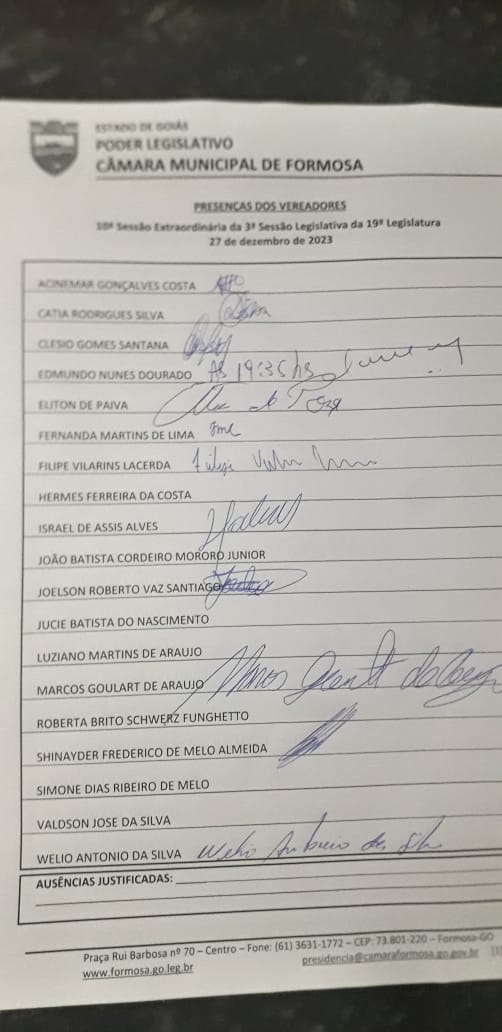 ESTADO DE GOIÁS
PODER LEGISLATIVO
CÂMARA MUNICIPAL DE FORMOSA
PRESENÇAS DOS VEREADORES
10ª Sessão Extraordinária da 3ª Sessão Legislativa da 19ª Legislatura
27 de dezembro de 2023
ACINEMAR GONÇALVES COSTA
CATIA RODRIGUES SILVA
CLESIO GOMES SANTANA
EDMUNDO NUNES DOURADO As 19:36 hs
ELITON DE PAIVA
FERNANDA MARTINS DE LIMA
FILIPE VILARINS LACERDA
HERMES FERREIRA DA COSTA
ISRAEL DE ASSIS ALVES
JOÃO BATISTA CORDEIRO MORORÓ JUNIOR
JOELSON ROBERTO VAZ SANTIAGO
JUCIE BATISTA DO NASCIMENTO
LUZIANO MARTINS DE ARAUJO
MARCOS GOULART DE ARAUJO
ROBERTA BRITO SCHWERZ FUNGHETTO
SHINAYDER FREDERICO DE MELO ALMEIDA
SIMONE DIAS RIBEIRO DE MELO
VALDSON JOSE DA SILVA
WELIO ANTONIO DA SILVA Welio Antonio da Silva
AUSÊNCIAS JUSTIFICADAS:
Praça Rui Barbosa nº 70 – Centro – Fone: (61) 3631-1772 – CEP: 73.801-220 – Formosa-GO
www.formosa.go.leg.br presidencia@camaraformosa.go.gov.br